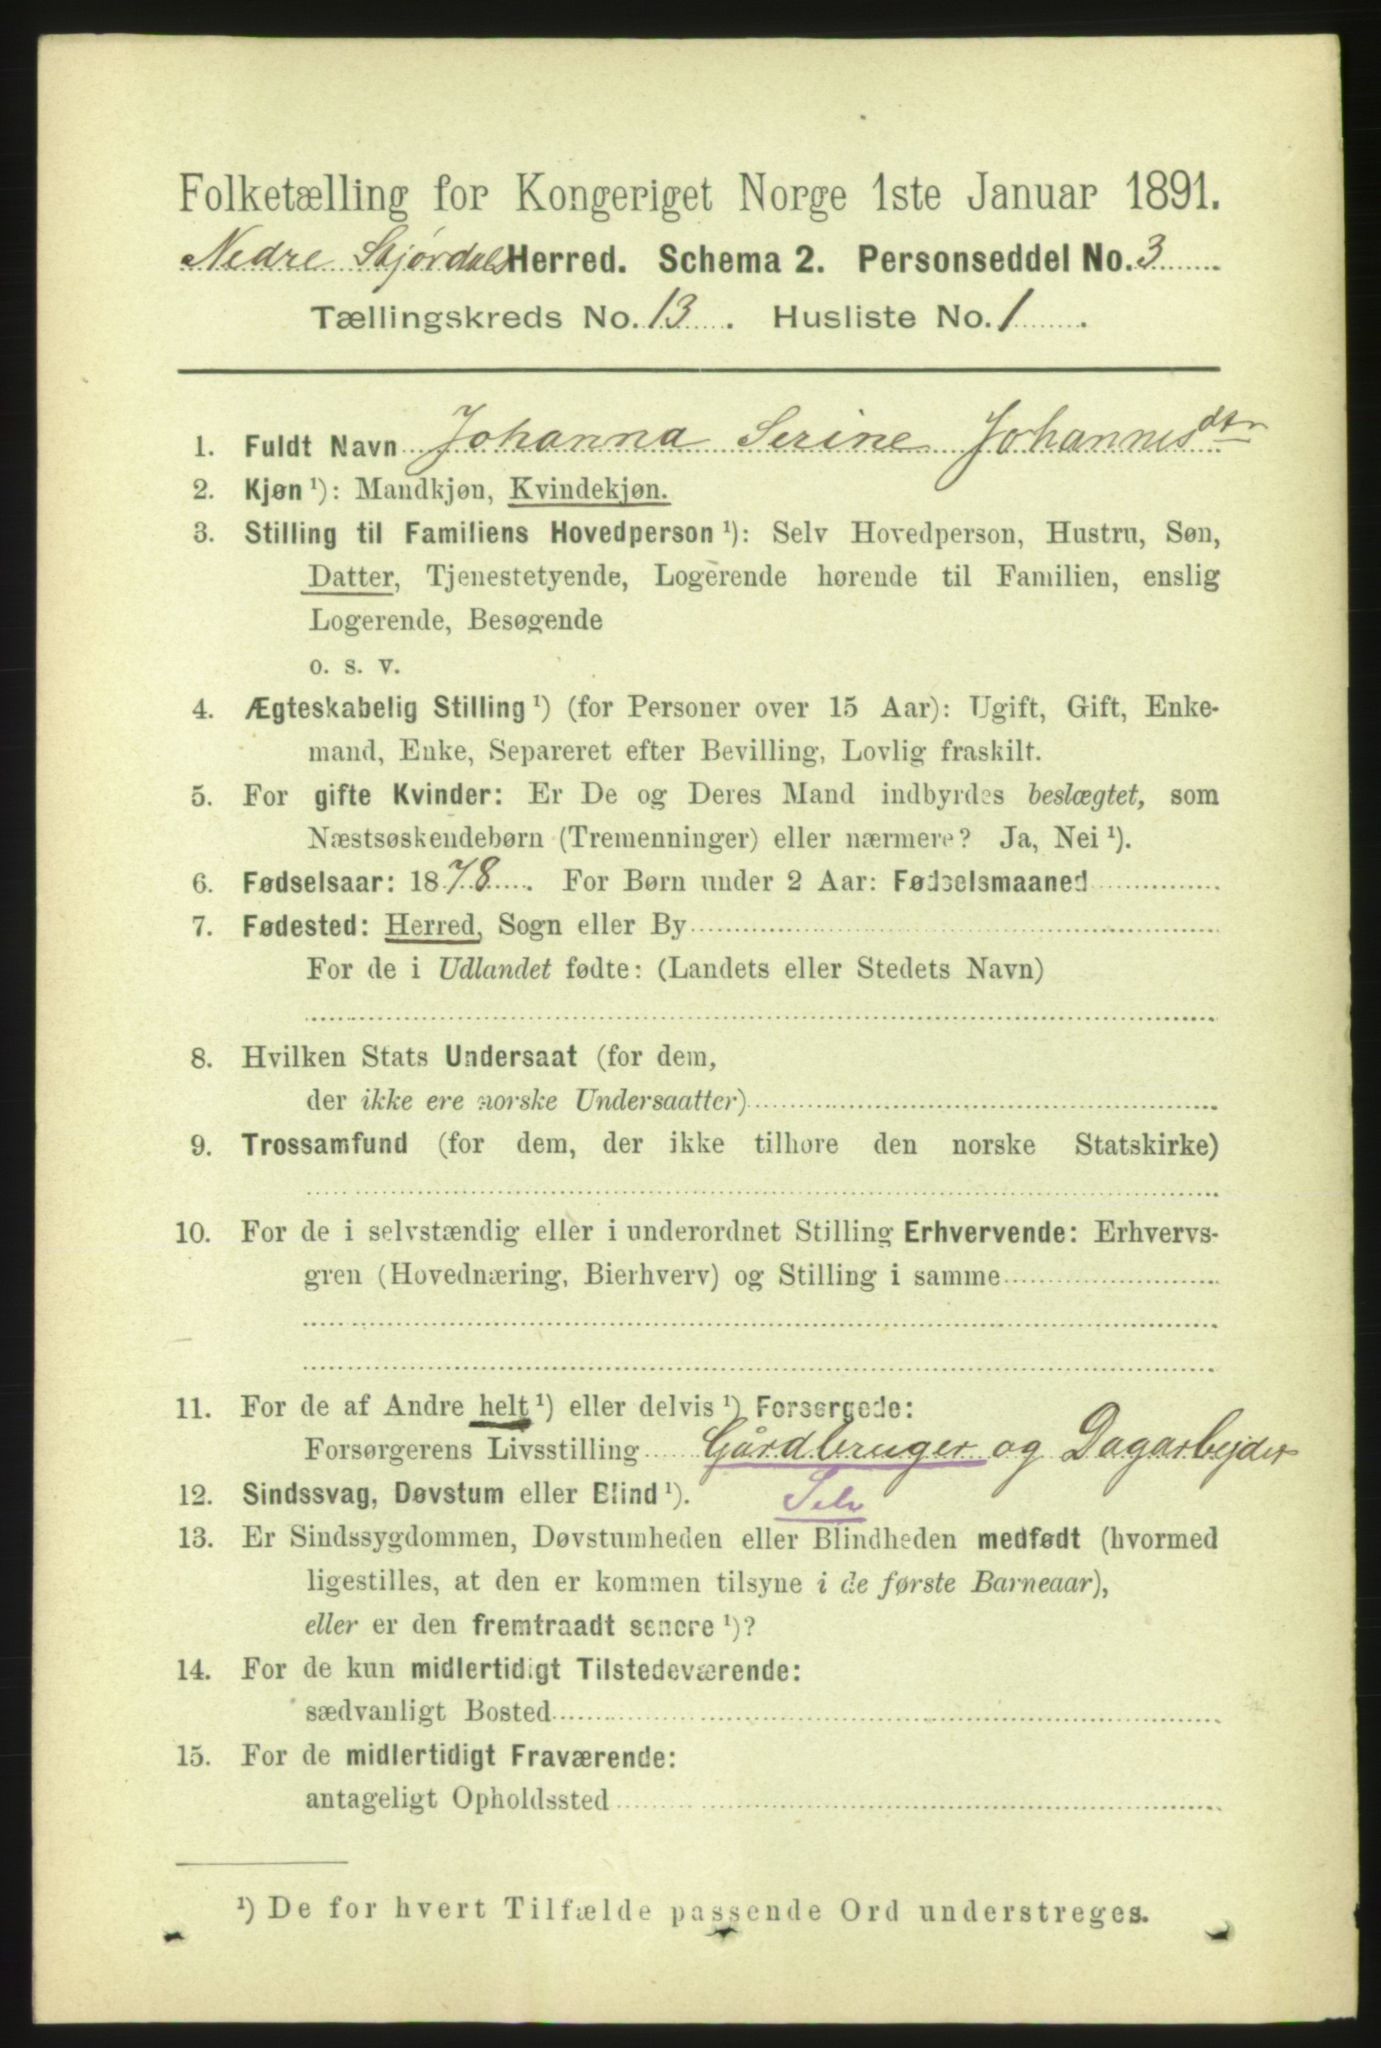 Folketælling for Kongeriget Norge 1ste Januar 1891.
Nedre Stjørdals Herred. Schema 2. Personseddel No. 3
Tællingskreds No. 13. Husliste No. 1
1. Fuldt Navn Johanna Serine Johannesdtr
2. Kjøn ¹): Mandkjøn, Kvindekjøn.
3. Stilling til Familiens Hovedperson ¹): Selv Hovedperson, Hustru, Søn,
Datter, Tjenestetyende, Logerende hørende til Familien, enslig
Logerende, Besøgende
o. s. v.
4. Ægteskabelig Stilling ¹) (for Personer over 15 Aar): Ugift, Gift, Enke-
mand, Enke, Separeret efter Bevilling, Lovlig fraskilt.
5. For gifte Kvinder: Er De og Deres Mand indbyrdes beslægtet, som
Næstsøskendebørn (Tremenninger) eller nærmere? Ja, Nei ¹).
6. Fødselsaar: 1878. For Børn under 2 Aar: Fødselsmaaned
7. Fødested: Herred, Sogn eller By
For de i Udlandet fødte: (Landets eller Stedets Navn)
8. Hvilken Stats Undersaat (for dem,
der ikke ere norske Undersaatter)
9. Trossamfund (for dem, der ikke tilhøre den norske Statskirke)
10. For de i selvstændig eller i underordnet Stilling Erhvervende: Erhvervs-
gren (Hovednæring, Bierhverv) og Stilling i samme
11. For de af Andre helt ¹) eller delvis ¹) Forsørgede:
Forsørgerens Livsstilling Gårdbruger og Dagarbejder
12. Sindssvag, Døvstum eller Blind ¹). Selv
13. Er Sindssygdommen, Døvstumheden eller Blindheden medfødt (hvormed
ligestilles, at den er kommen tilsyne i de første Barneaar),
eller er den fremtraadt senere ¹)?
14. For de kun midlertidigt Tilstedeværende:
sædvanligt Bosted
15. For de midlertidigt Fraværende:
antageligt Opholdssted
¹) De for hvert Tilfælde passende Ord understreges.